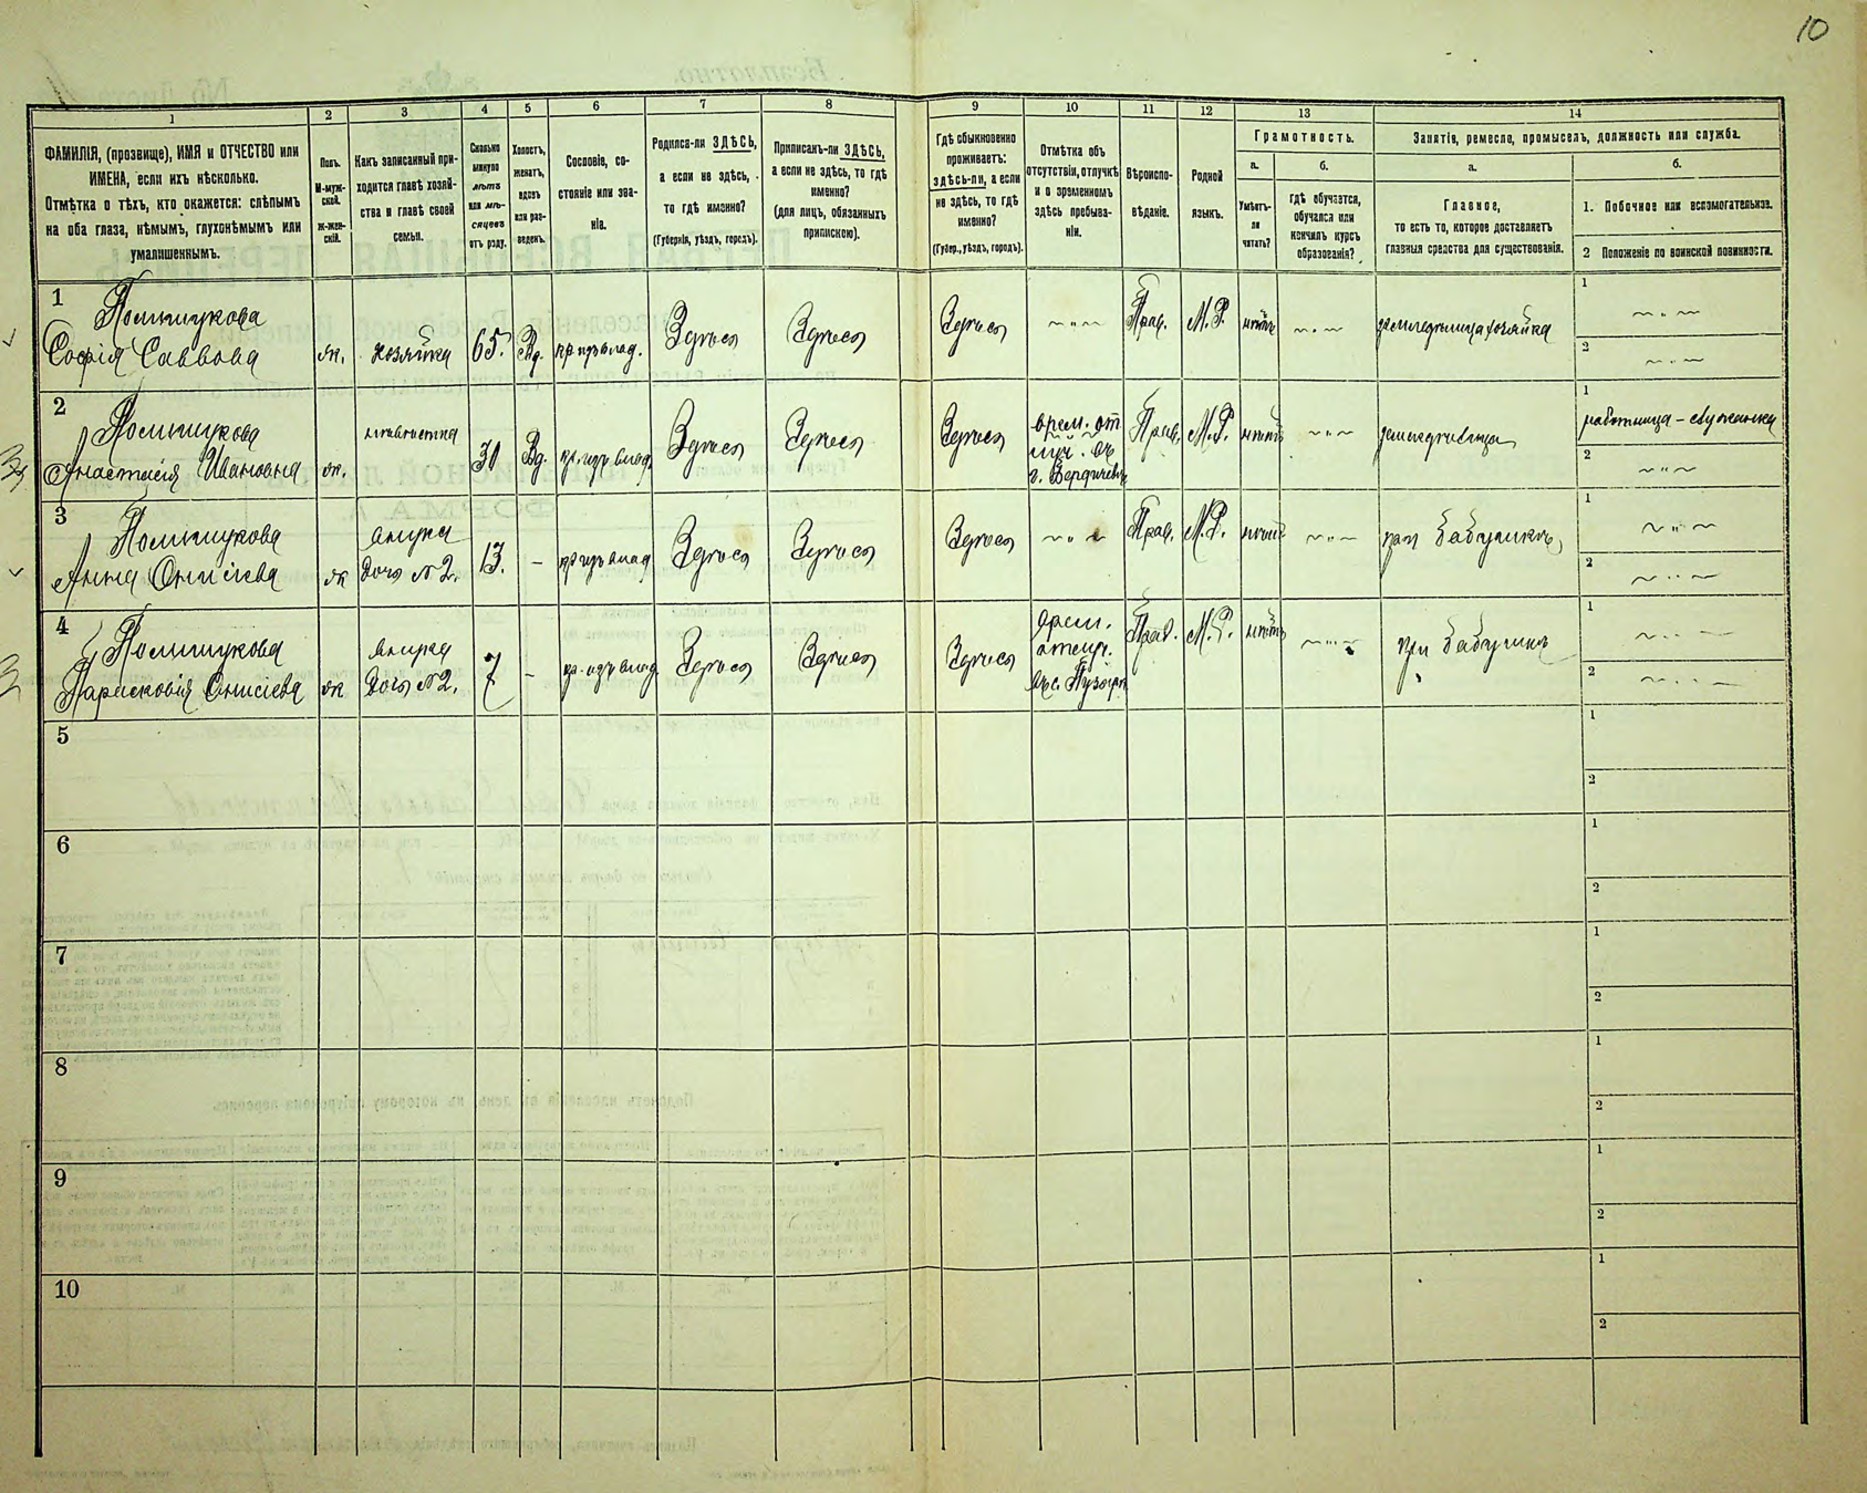 10
1 2 3 4 5 6 7 8 9 10 11 12 13 14
ФАМИЛІЯ, (прозвище), ИМЯ и ОТЧЕСТВО или
ИМЕНА, если ихъ нѣсколько.
Отмѣтка о тѣхъ, кто окажется: слѣпымъ
на оба глаза, нѣмымъ, глухонѣмымъ или
умалишеннымъ.
Полъ.
М-муж-
ской.
Ж-жен-
скій.
Какъ записанный при-
ходится главѣ хозяй-
ства и главѣ своей
семьи.
Сколько
минуло
лѣтъ
или мѣ-
сяцевъ
отъ роду.
Холостъ,
женатъ,
вдовъ
или раз-
веденъ.
Сословіе, со-
стояніе или зва-
ніе.
Родился-ли ЗДѢСЬ,
а если не здѣсь,
то гдѣ именно?
(Губернія, уѣздъ, городъ).
Приписанъ-ли ЗДѢСЬ,
а если не здѣсь, то гдѣ
именно?
(для лицъ, обязанныхъ
припискою).
Гдѣ обыкновенно
проживаетъ:
здѣсь-ли, а если
не здѣсь, то гдѣ
именно?
(Губер., уѣздъ, городъ).
Отмѣтка объ
отсутствіи, отлучкѣ
и о временномъ
здѣсь пребыва-
ніи.
Вѣроиспо-
вѣданіе.
Родной
языкъ.
Грамотность.
а.
Умѣетъ-
ли
читать?
б.
Гдѣ обучается,
обучался или
кончилъ курсъ
образованія?
Занятіе, ремесло, промыселъ, должность или служба.
а.
Главное,
то есть то, которое доставляетъ
главныя средства для существованія.
б.
1. Побочное или вспомогательное.
2 Положеніе по воинской повинности.
1
Полищукова
Софія Саввова
ж. хозяйка 65. Вд. кр. изъ влад. Здѣсь Здѣсь Здѣсь — " — Прав. М. Р. нѣтъ — " — земледѣлица хозяйка
1 — " —
2 — " —
2
Полищукова
Анастасія Ивановна
ж. невѣстка 30 Вд. кр. изъ влад. Здѣсь Здѣсь Здѣсь
врем. от
луч. въ
г. Бердичевѣ
Прав. М. Р. нѣтъ — " —
1 работница - служанка
2 — " —
3
Полищукова
Анна Онисіева
ж внучка
Дочь №2.
13. - кр. изъ влад Здѣсь Здѣсь Здѣсь — " — Прав. М. Р. — " — при бабушкѣ
1 — " —
2 — " —
4
Полищукова
Парасковія Онисіева
ж внучка
Дочь №2.
7 - кр. изъ влад. Здѣсь Здѣсь Здѣсь
врем.
отлуч.
Прав. М. Р. нѣтъ — " — при бабушкѣ
1 — " —
2 — " —
5 1
2
6 1
2
7 1
2
8 1
2
9 1
2
10 1
2